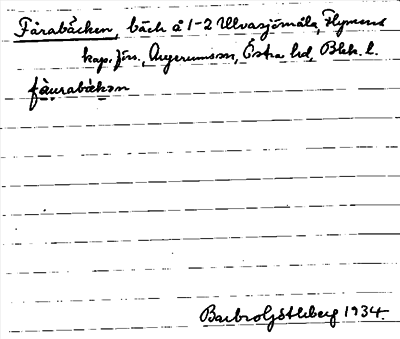 Fårabäcken, bäck å 1-2 Ulvasjömåla, Flymens
kap. förs., Augerums sn, Östra hd, Blek. l.
fåurabäkən
Barbro Göthberg 1934.